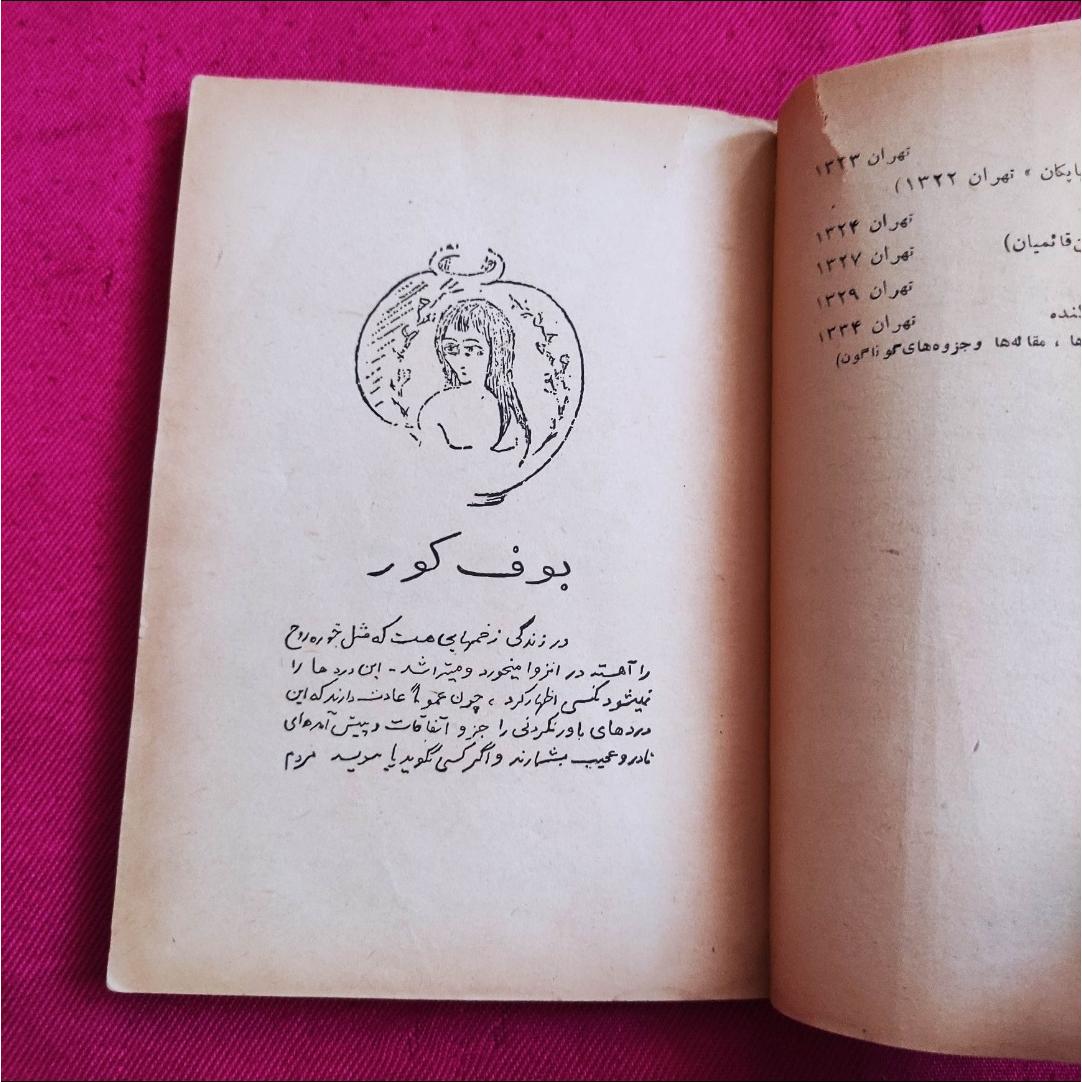 تهران ۱۳۲۳
بابکان » تهران ۱۳۲۲)
تهران ۱۳۲۴
قائمیان)
تهران ۱۳۲۷
تهران ۱۳۲۹
تهران ۱۳۳۴
ها ، مقاله‌ها وجزوه‌های گوناگون)
بوف کور
در زندگی زخمهایی هست که مثل خوره روح
را آهسته در انزوا میخورد و میتراشد - این دردها را
نمیشود بکسی اظهار کرد ، چون عموماً عادت دارند که این
دردهای باورنکردنی را جزو اتفاقات و پیش آمدهای
نادر و عجیب بشمارند و اگر کسی بگوید یا بنویسد مردم